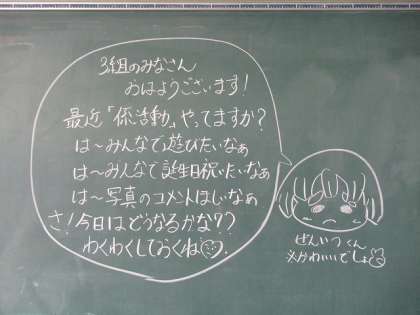 3組のみなさん
おはようございます!
最近「係活動」やってますか?
は~みんなで遊びたいなぁ
は~みんなで誕生日祝いたいなぁ
は~写真のコメントほしいなぁ
さ!今日はどうなるかな??
わくわくしておくね
ぜんいつくん
※かわいいでしょ